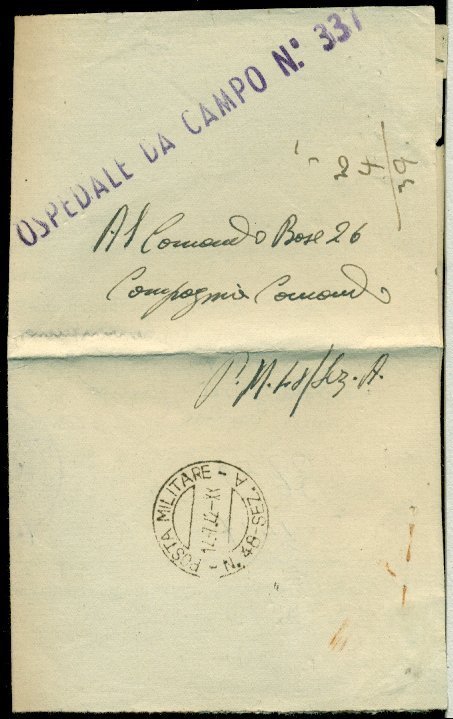 OSPEDALE DA CAMPO N.° 337
24
39
Al Comando Base 26
Compagnia Comando
P.M. 48/Sez. A.
POSTA MILITARE - N. 48 - SEZ. A